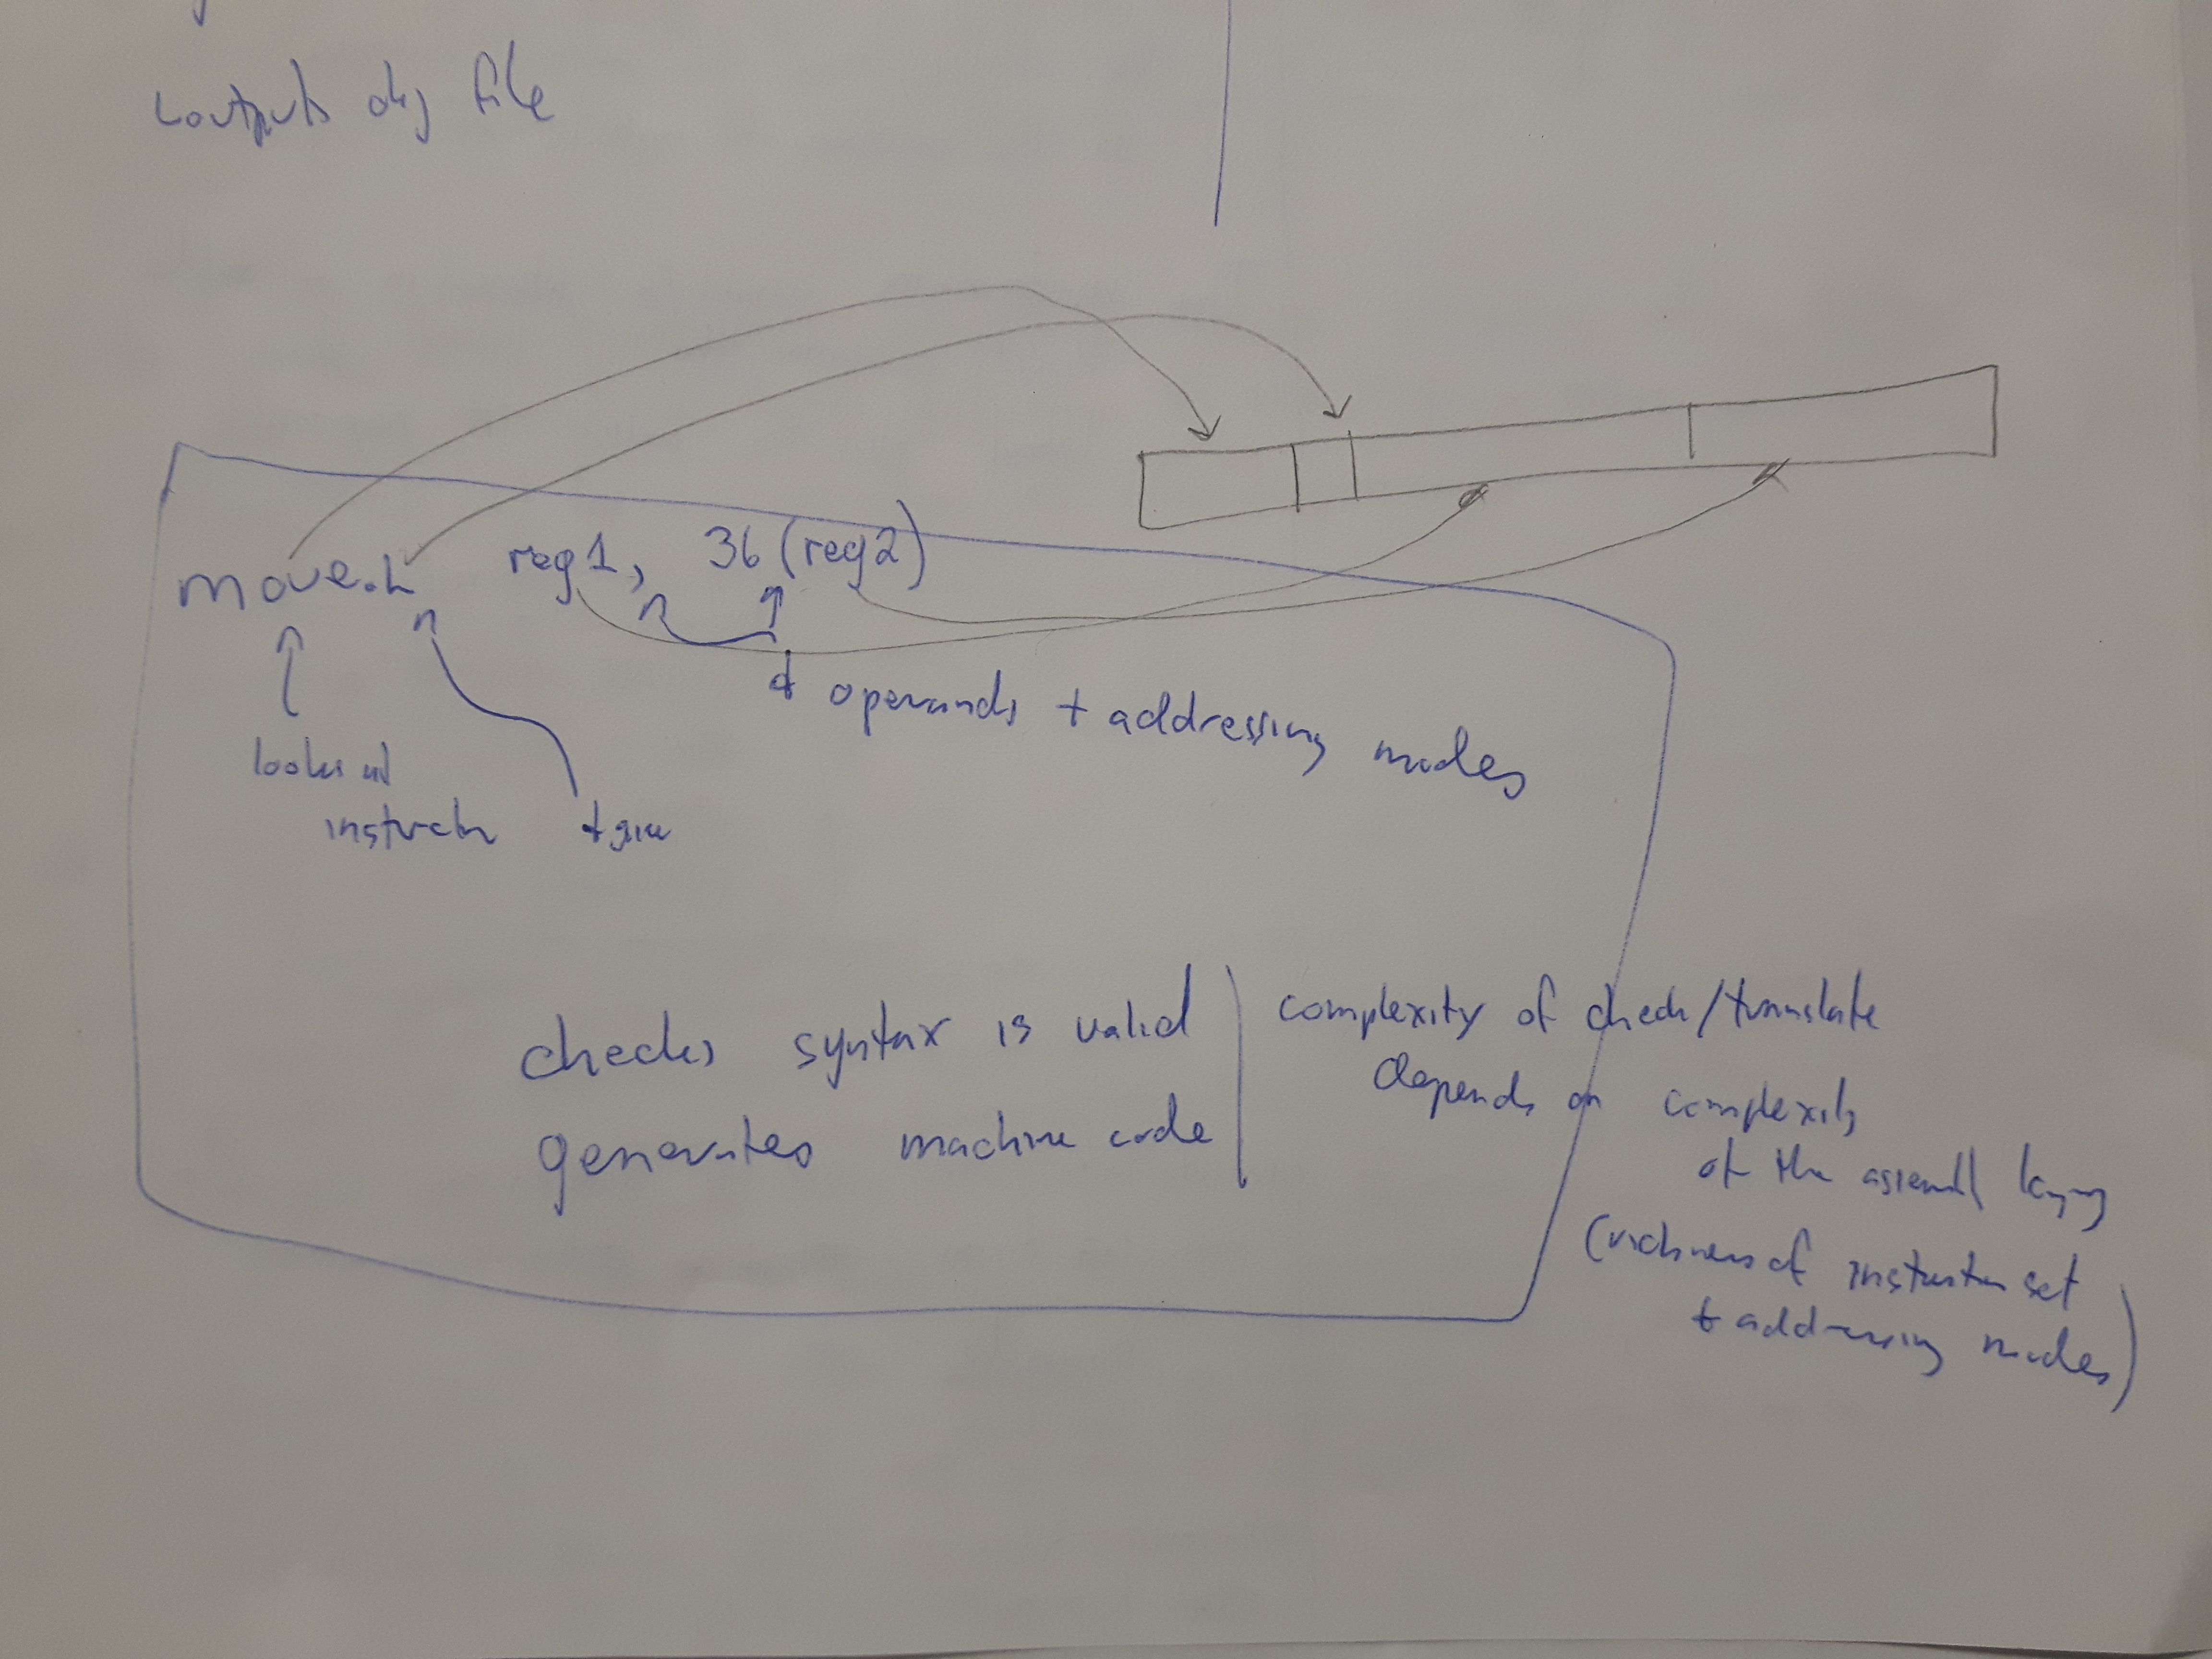 outputs obj file
move.L reg1, 36(reg2)
+ operands + addressing modes
looks at
instructn + size
checks syntax is valid
generates machine code
complexity of check/translate
depends on complexity
of the assembl
(richness of instruction set
+ addressing modes)